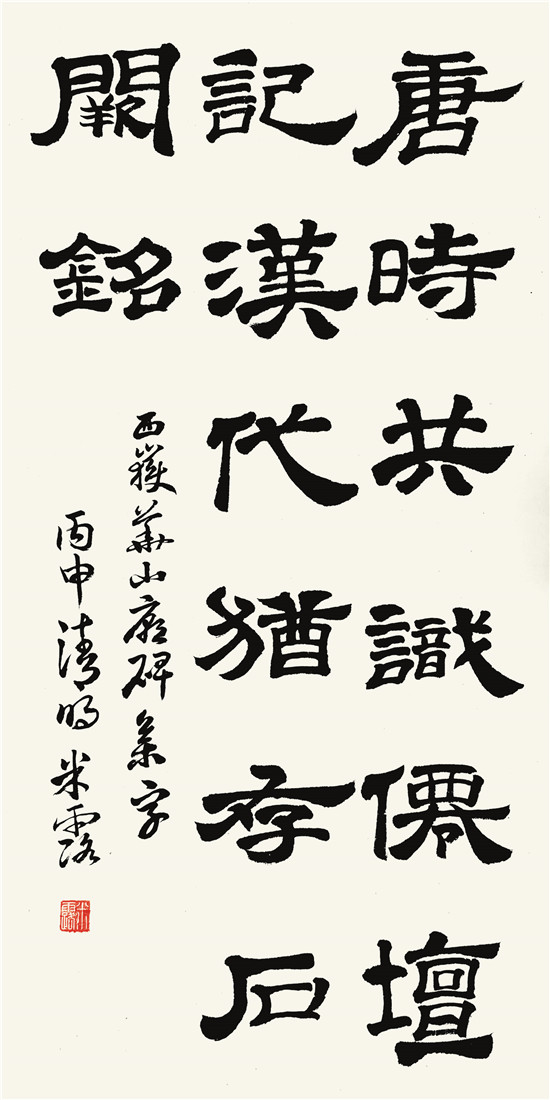 唐時共識僊壇
記漢代猶存石
闕銘
西嶽華山廟碑集字
丙申清明米露
米露